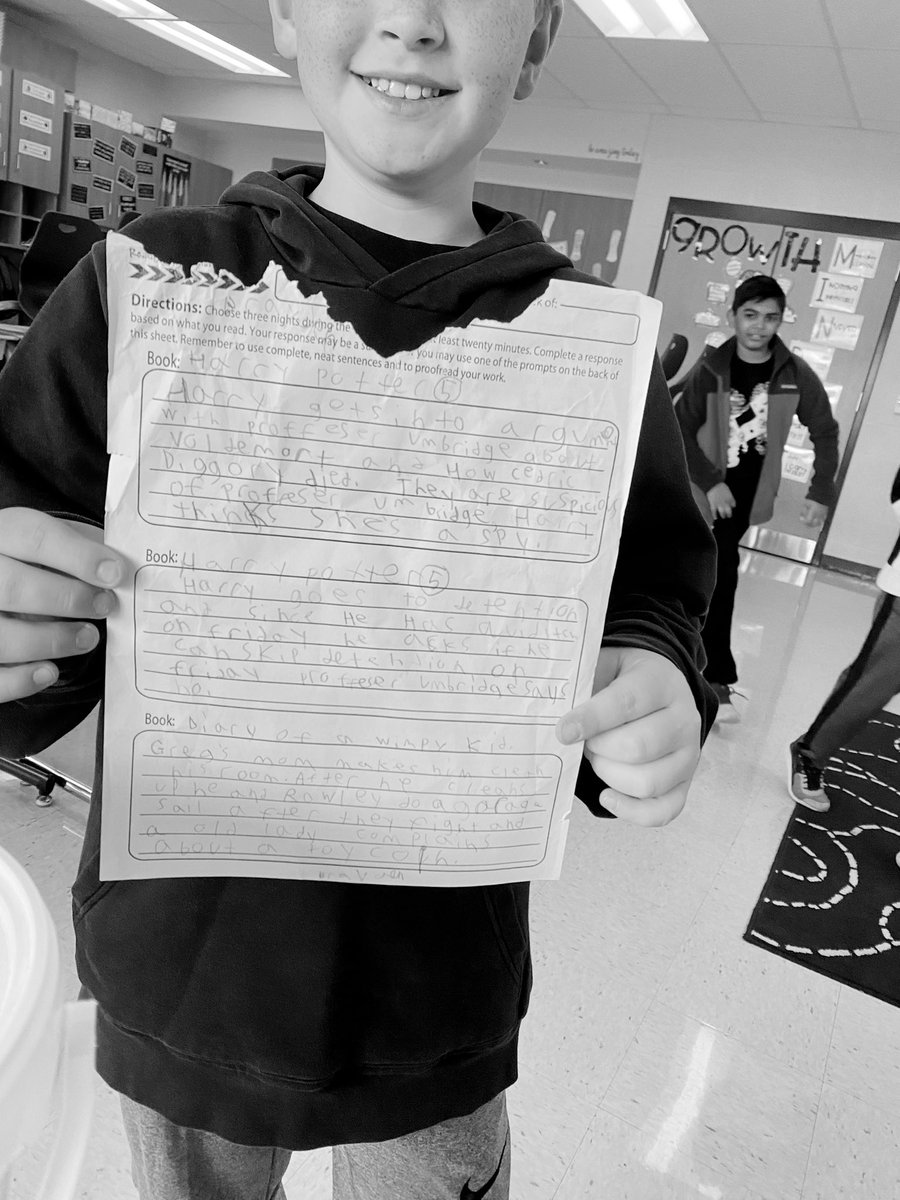 to ensure going today
GROWTH
M
I
N
Directions: Choose three nights during the
k of:
least twenty minutes. Complete a response
based on what you read. Your response may be a
you may use one of the prompts on the back of
this sheet. Remember to use complete, neat sentences and to proofread your work.
Book: Harry potter 5
Harry gets into argum
with proffeser umbridge about
Voldemort and How cedric
Diggory died. They are suspicious
of profeser umbridge Harry
thinks she's a spy.
Book: Harry potter 5
Harry goes to detention
and since He Has
on friday he asks if he
can skip detention on
friday proffeser umbridge says
no.
Book: Diary of a wimpy kid.
Greg's mom makes him clean
his room. After he cleans
up he and Rawley do a garage
sail after they fight and
a old lady complains
about a toy